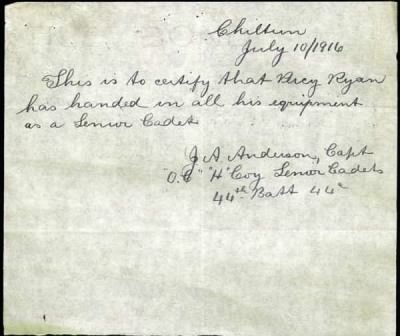 Chiltern
July 10/1916
This is to certify that Percy Ryan
has handed in all his equipment
as a Senior Cadet
J A Anderson, Capt
"O.C" "H" Coy Senior Cadets
44th Batt 44a